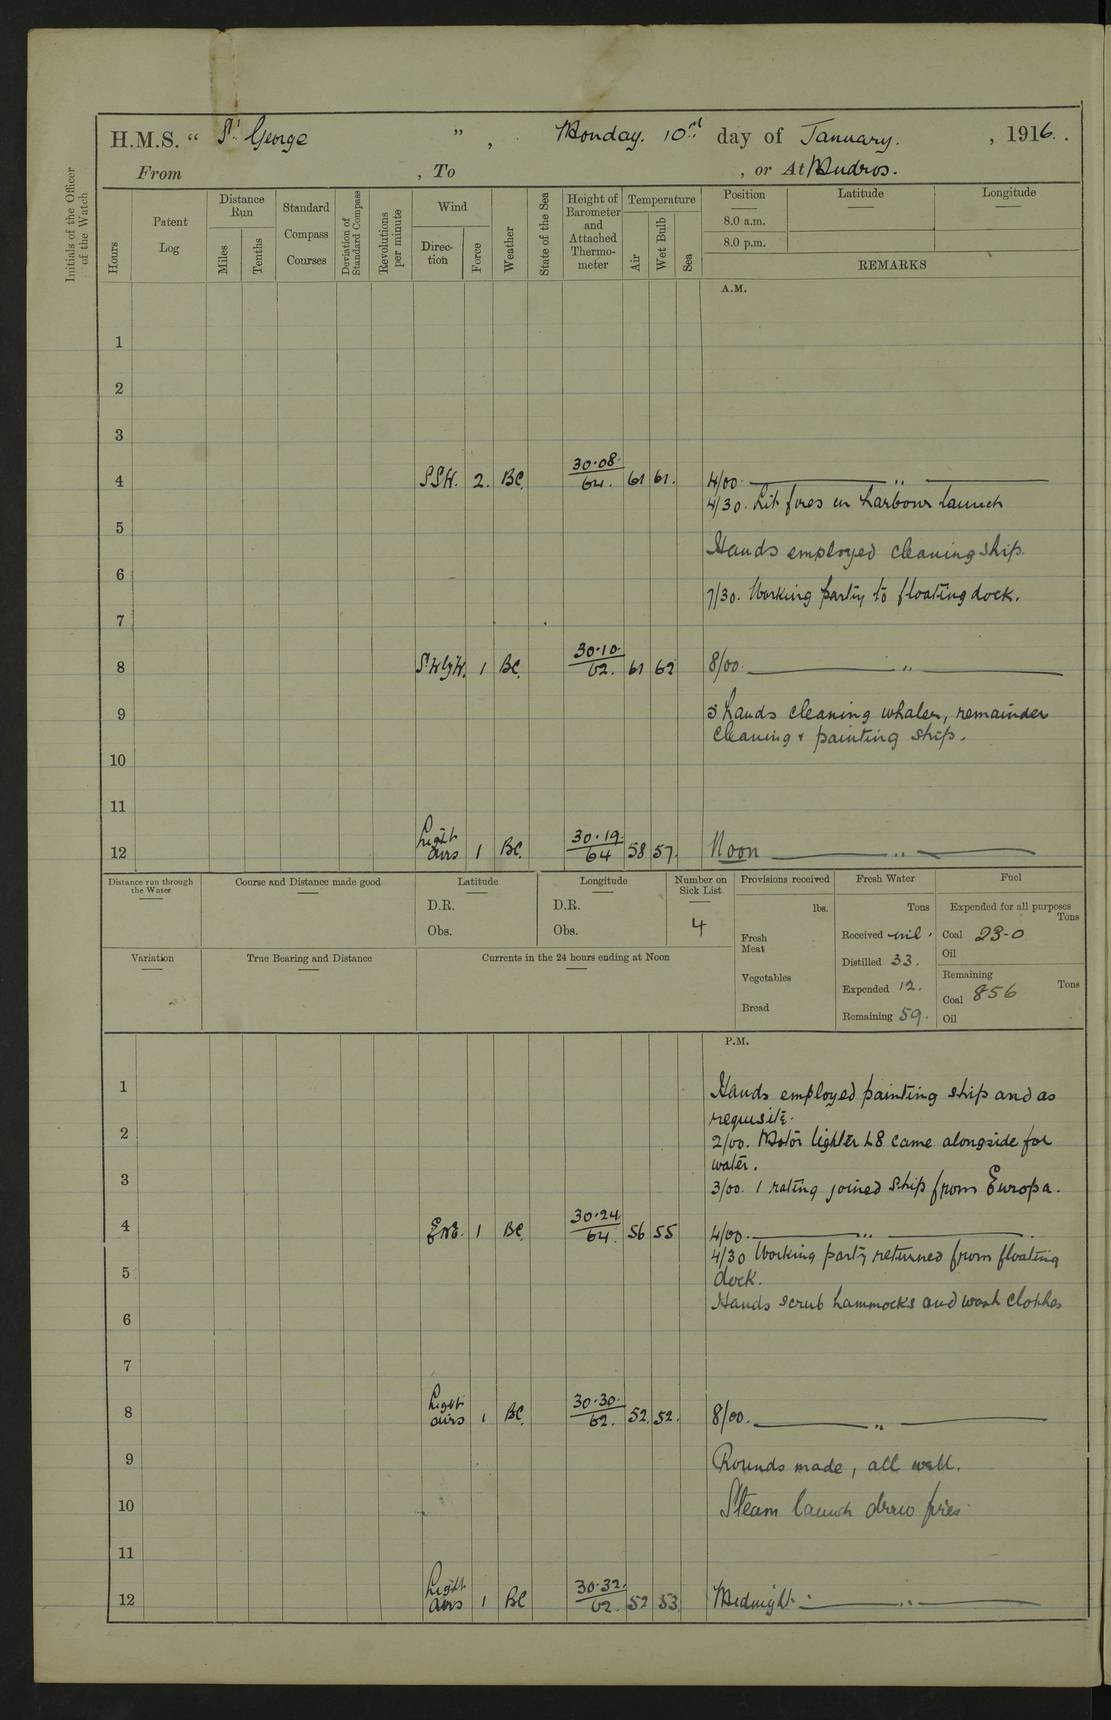 H.M.S. " St George ", Monday. 10th day of January. , 1916.
From , To , or At Mudros.
Initials of the Officer of the Watch
Hours
Patent Log
Distance Run
Miles
Tenths
Standard Compass Courses
Deviation of Standard Compass
Revolutions per minute
Wind
Direction
Force
Weather
State of the Sea
Height of Barometer and Attached Thermometer
Temperature
Air
Wet Bulb
Sea
Position
8.0 a.m.
8.0 p.m.
Latitude
Longitude
REMARKS
A.M.
1
2
3
4 SSW. 2. BC. 30.08 64. 61 61. 4/00. ——— " ———
4/30. Lit fires in harbour launch
5
Hands employed cleaning ship.
6
7/30. Working party to floating dock.
7
8 SWbyW. 1 BC. 30.10. 62. 61 62 8/00. ——— " ———
9 5 hands cleaning whaler, remainder
cleaning & painting ship.
10
11
12 Light airs 1 BC. 30.19. 64 58 57. Noon ——— " ———
Distance run through the Water
Course and Distance made good
Latitude
D.R.
Obs.
Longitude
D.R.
Obs.
Number on Sick List
4
Provisions received
lbs.
Fresh Meat
Vegetables
Bread
Fresh Water
Tons
Received nil.
Distilled 33.
Expended 12.
Remaining 59.
Fuel
Expended for all purposes
Tons
Coal 23-0
Oil
Remaining
Tons
Coal 856
Oil
Variation
True Bearing and Distance
Currents in the 24 hours ending at Noon
P.M.
1 Hands employed painting ship and as
requisite.
2 2/00. Motor lighter L8 came alongside for
water.
3 3/00. 1 rating joined ship from Europa.
4 ENE. 1 BC 30.24 64. 56 55 4/00. ——— " ———
4/30 Working party returned from floating
5 dock.
Hands scrub hammocks and wash clothes
6
7
8 Light airs 1 BC. 30.30. 62. 52. 52. 8/00. ——— " ———
9 Rounds made, all well.
10 Steam launch draw fires.
11
12 Light airs 1 BC 30.32. 62. 52 53. Midnight. ——— " ———